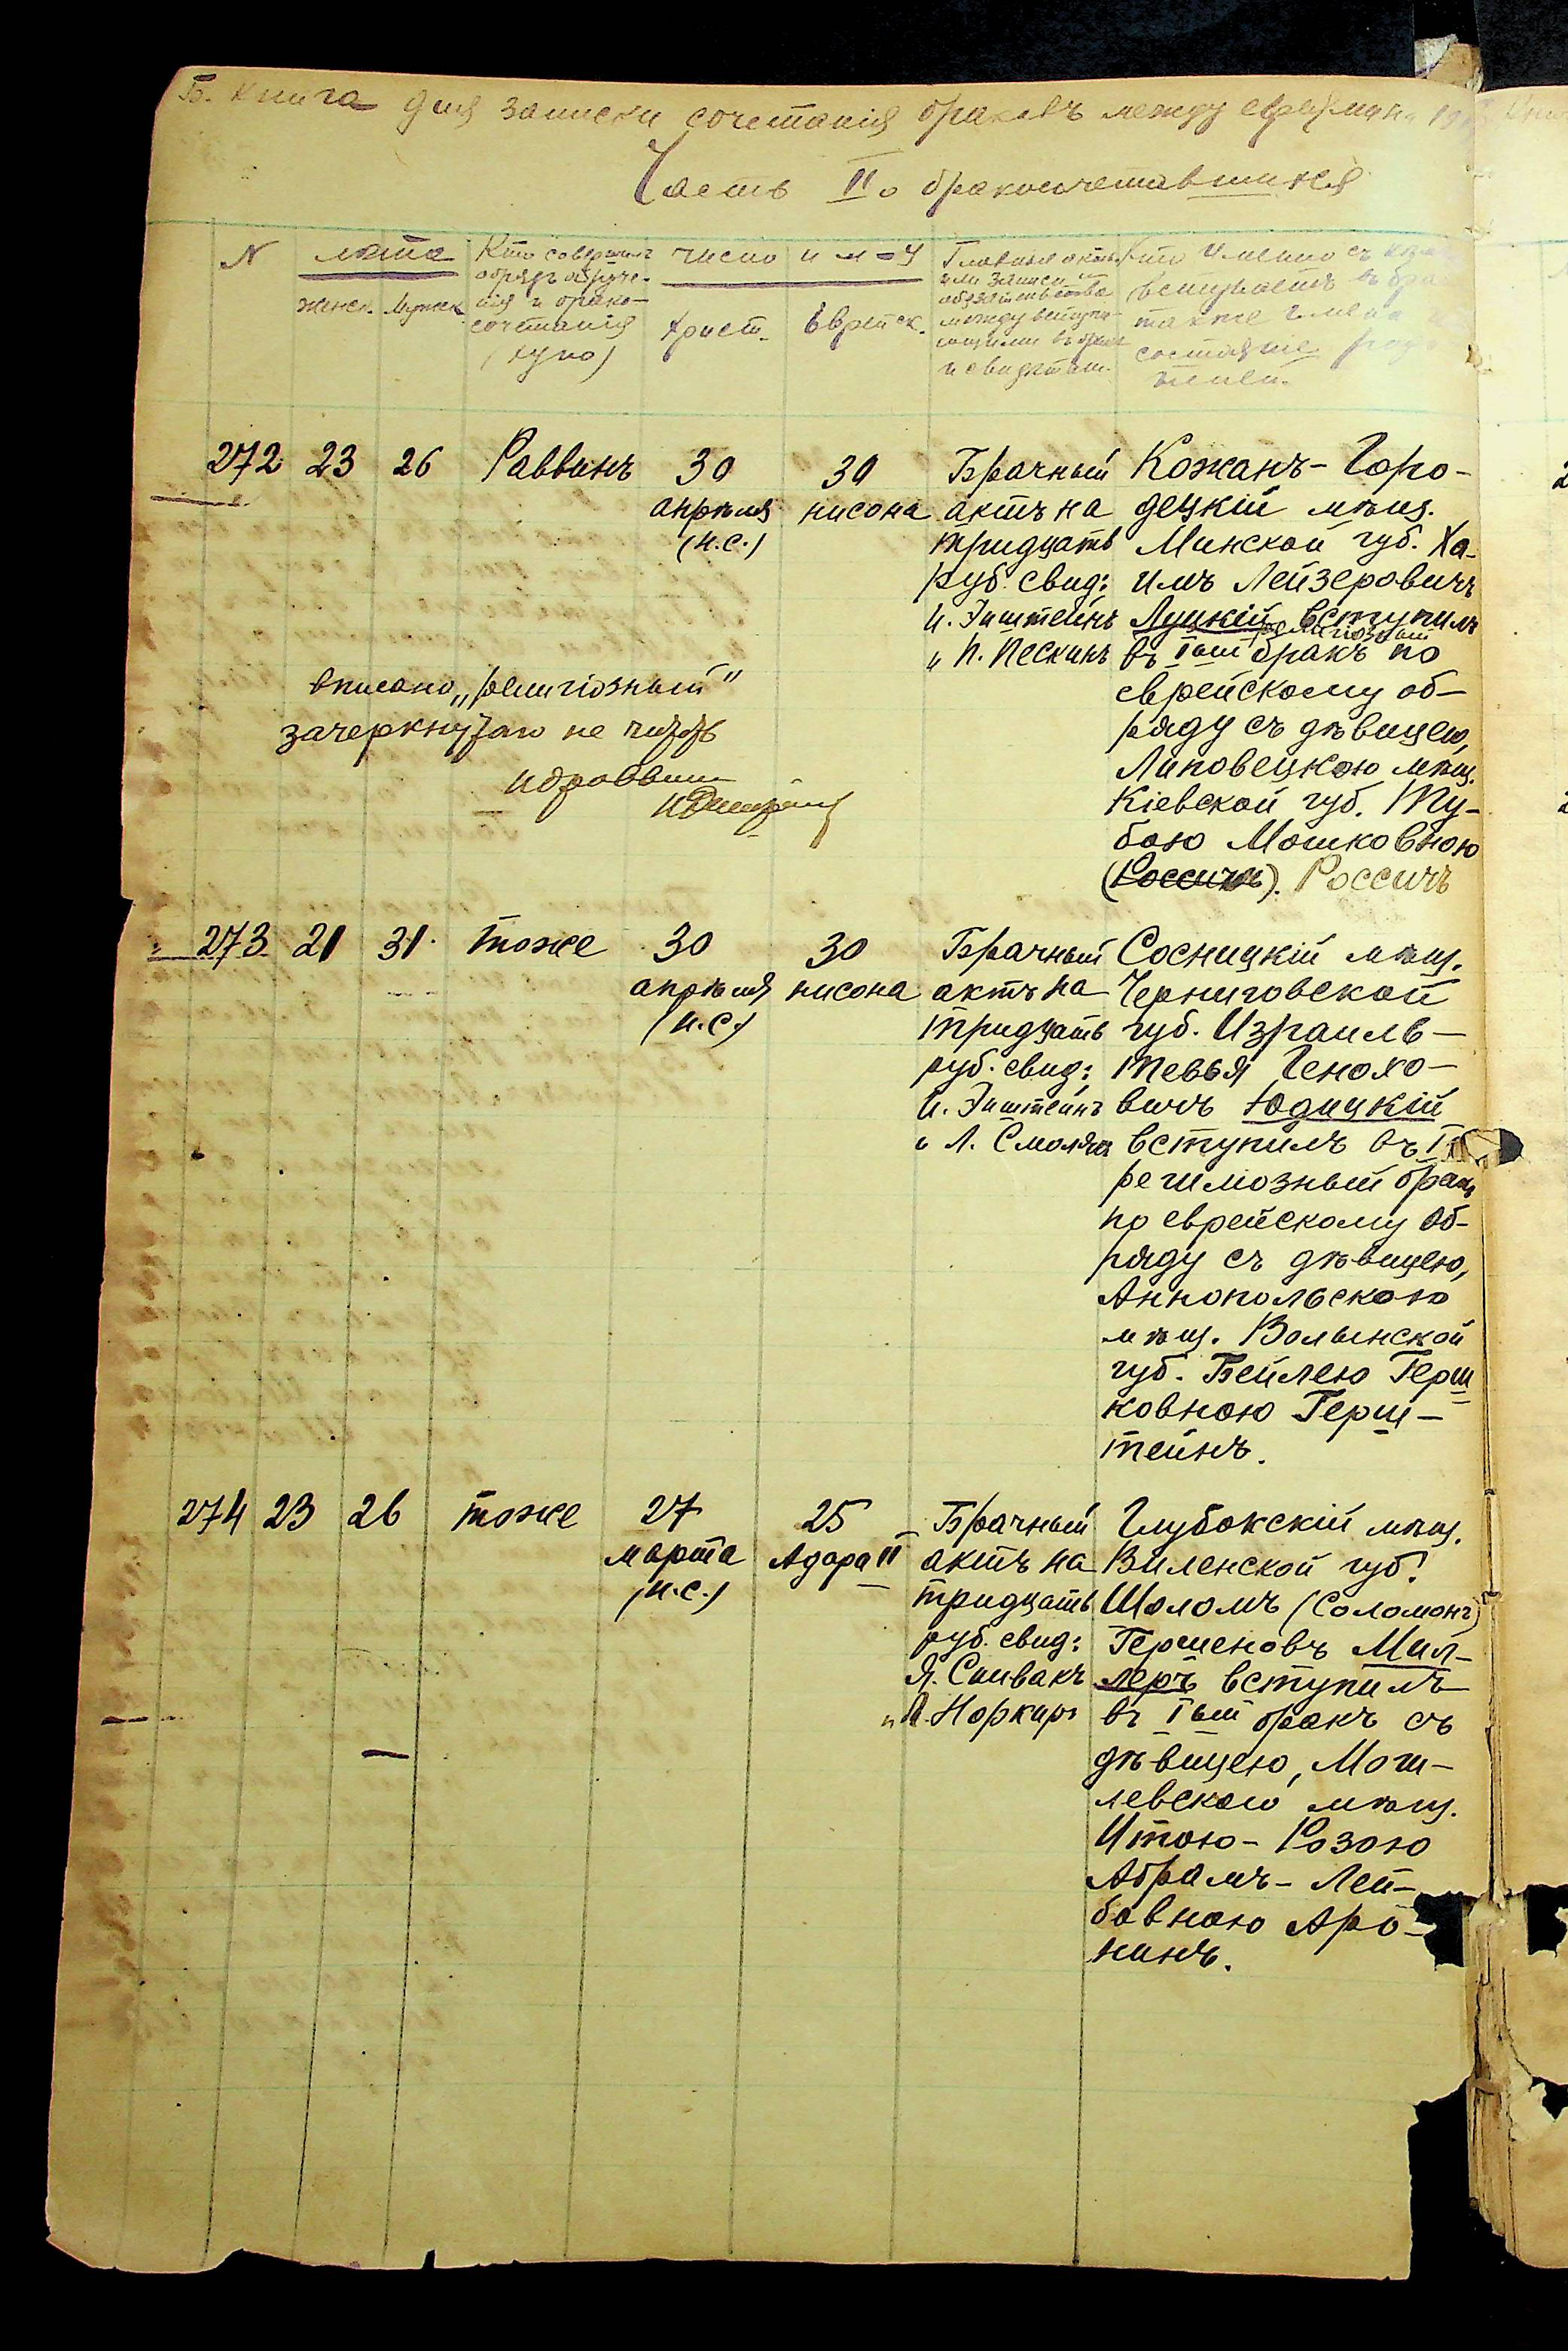 Б. Книга для записки сочетанія браковъ между евреями
Часть II о бракосочетавшихся
N
лѣта
женск. Мужск.
Кто совершилъ
обрядъ обруче-
нія и брако-
сочетанія
(хупо)
число и м-ц
Христ. Еврейск.
Главные акты
или записи и
обязательства
между вступа-
ющими въ бракъ
и свидѣтели.
Кто именно съ кѣмъ
вступаетъ въ бра
также имена
состояніе
телей.
272 23 26 Раввинъ
30
апрѣля
(н.с.)
30
нисона
Брачный
актъ на
тридцать
руб. свид:
И. Эпштейнъ
и П. Пескинъ
Кожанъ-Горо-
децкій мѣщ.
Минской губ. Ха-
имъ Лейзеровичъ
Луцкій вступилъ
религіозный
въ Iый бракъ по
еврейскому об-
ряду съ дѣвицею,
Липовецкою мѣщ.
Кіевской губ. Ту-
бою Мошковною
(Россичъ). Россичъ
вписано „религіозный"
зачеркнутаго не читать
273 21 31 тоже
30
апрѣля
(н.с.)
30
нисона
Брачный
актъ на
тридцать
руб. свид:
И. Эпштейнъ
и Л. Смоляр
Сосницкій мѣщ.
Черниговской
губ. Израиль-
Тевья Генохо-
вичъ Юдицкій
вступилъ въ I
религіозный бракъ
по еврейскому об-
ряду съ дѣвицею,
Аннопольскою
мѣщ. Волынской
губ. Бейлею Герш
ковною Герш-
тейнъ.
274 23 26 тоже
27
марта
(н.с.)
25
Адара II
Брачный
актъ на
тридцать
руб. свид:
Я. Спивакъ
Глубокскій мѣщ.
Виленской губ.
Шоломъ (Соломонъ)
Гершеновъ Мил-
леръ вступилъ
въ Iый бракъ съ
дѣвицею, Моги-
левскою мѣщ.
Итою-Розою
Абрамъ-Лей-
бовною Аро-
нинъ.